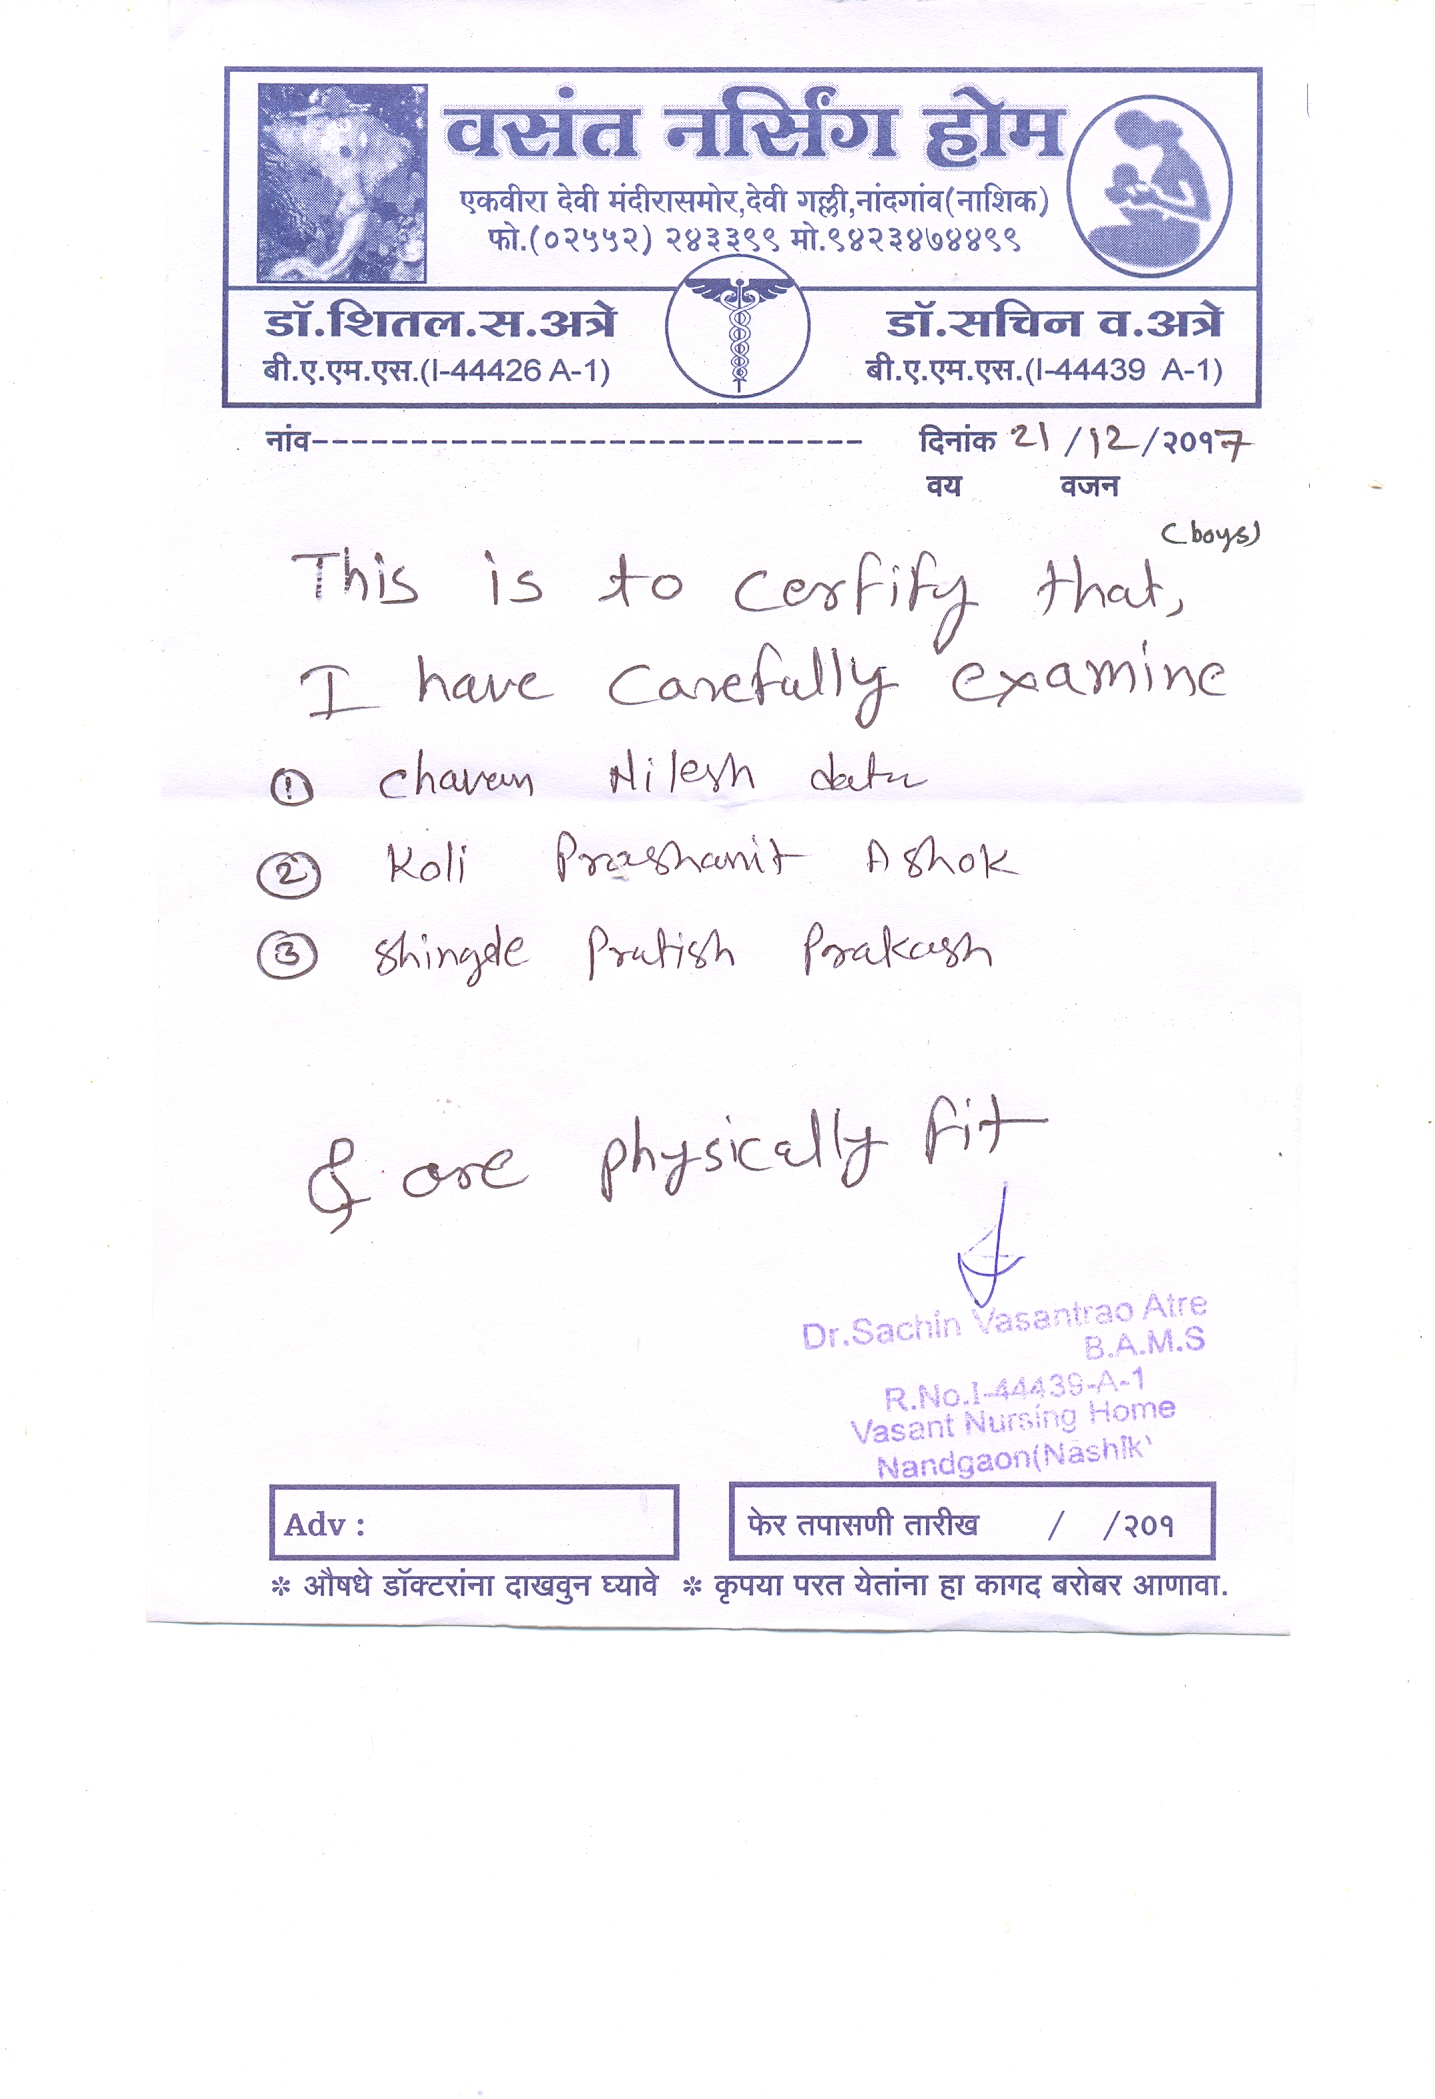 वसंत नर्सिंग होम
एकवीरा देवी मंदीरासमोर,देवी गल्ली,नांदगांव(नाशिक)
फो.(०२५५२) २४३३९९ मो.९४२३४७४४९९
डॉ.शितल.स.अत्रे
बी.ए.एम.एस.(I-44426 A-1)
डॉ.सचिन व.अत्रे
बी.ए.एम.एस.(I-44439 A-1)
नांव----------------------------- दिनांक 21/12/२०१7
वय वजन
(boys)
This is to certify that,
I have carefully examine
① Chavan Nilesh data
② Koli Prashanit Ashok
③ Shingde Pratish Prakash
& are physically fit
Dr.Sachin Vasantrao Atre
B.A.M.S
R.No.I-44439-A-1
Vasant Nursing Home
Nandgaon(Nashik)
Adv :
फेर तपासणी तारीख / /२०१
* औषधे डॉक्टरांना दाखवुन घ्यावे * कृपया परत येतांना हा कागद बरोबर आणावा.